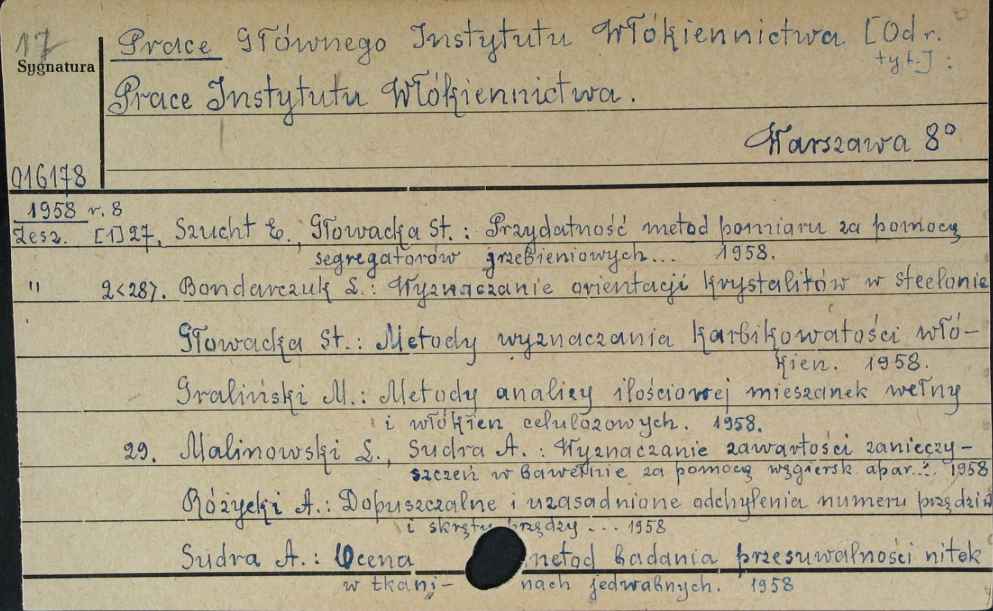 17
Sygnatura
Prace Głównego Instytutu Włókiennictwa [Od r.
tyt.] :
Prace Instytutu Włókiennictwa.
Warszawa 8°
016178
1958 r. 8
Zesz. [1]27. Szucht E., Głowacka St.: Przydatność metod pomiaru za pomocą
segregatorów grzebieniowych... 1958.
" 2<28>. Bondarczuk L.: Wyznaczanie orientacji krystalitów w steelonie
Głowacka St.: Metody wyznaczania karbikowatości włó-
kien. 1958.
Graliński M.: Metody analizy ilościowej mieszanek wełny
i włókien celulozowych. 1958.
29. Malinowski L., Sudra A.: Wyznaczanie zawartości zanieczy-
szczeń w bawełnie za pomocą węgiersk. apar... 1958
Różycki A.: Dopuszczalne i uzasadnione odchylenia numeru
i skrętu przędzy... 1958
Sudra A.: Ocena metod badania przesuwalności nitek
w tkani- nach jedwabnych. 1958